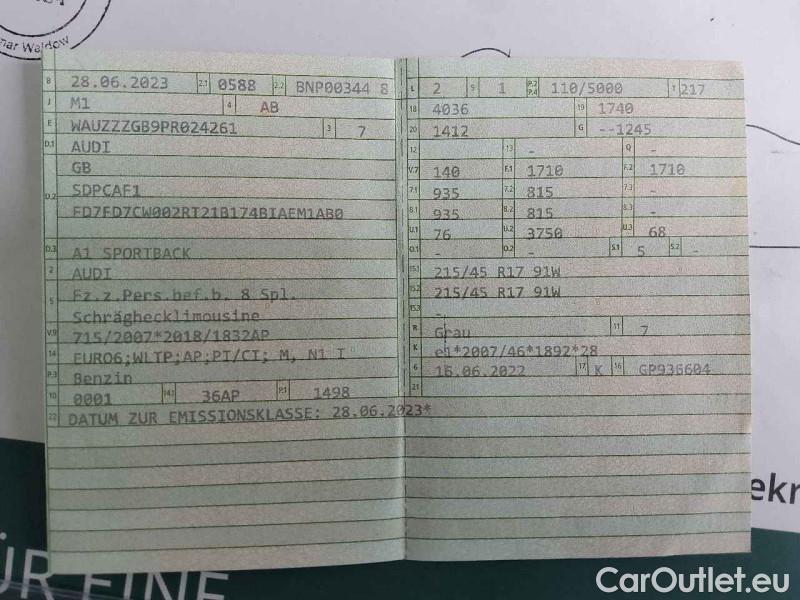 nar Waldow
B 28.06.2023 2.1 0588 2.2 BNP00344 8
J M1 4 AB
E WAUZZZGB9PR024261 3 7
D.1 AUDI
GB
D.2 SDPCAF1
FD7FD7CW002RT21B174BIAEM1AB0
D.3 A1 SPORTBACK
2 AUDI
5 Fz.z.Pers.bef.b. 8 Spl.
Schräghecklimousine
V.9 715/2007*2018/1832AP
14 EURO6;WLTP;AP;PI/CI; M, N1 I
P.3 Benzin
10 0001 14.1 36AP P.1 1498
22 DATUM ZUR EMISSIONSKLASSE: 28.06.2023*
L 2 9 1 P.2 P.4 110/5000 T 217
18 4036 19 1740
20 1412 G --1245
12 - 13 - Q -
V.7 140 F.1 1710 F.2 1710
7.1 935 7.2 815 -
8.1 935 8.2 815 8.3 -
U.1 76 U.2 3750 U.3 68
O.1 - O.2 - S.1 5 S.2 -
15.1 215/45 R17 91W
15.2 215/45 R17 91W
15.3 -
R Grau 11 7
K e1*2007/46*1892*28
6 16.06.2022 17 K 16 GP936604
21
ekn
ÜR EINE
CarOutlet.eu